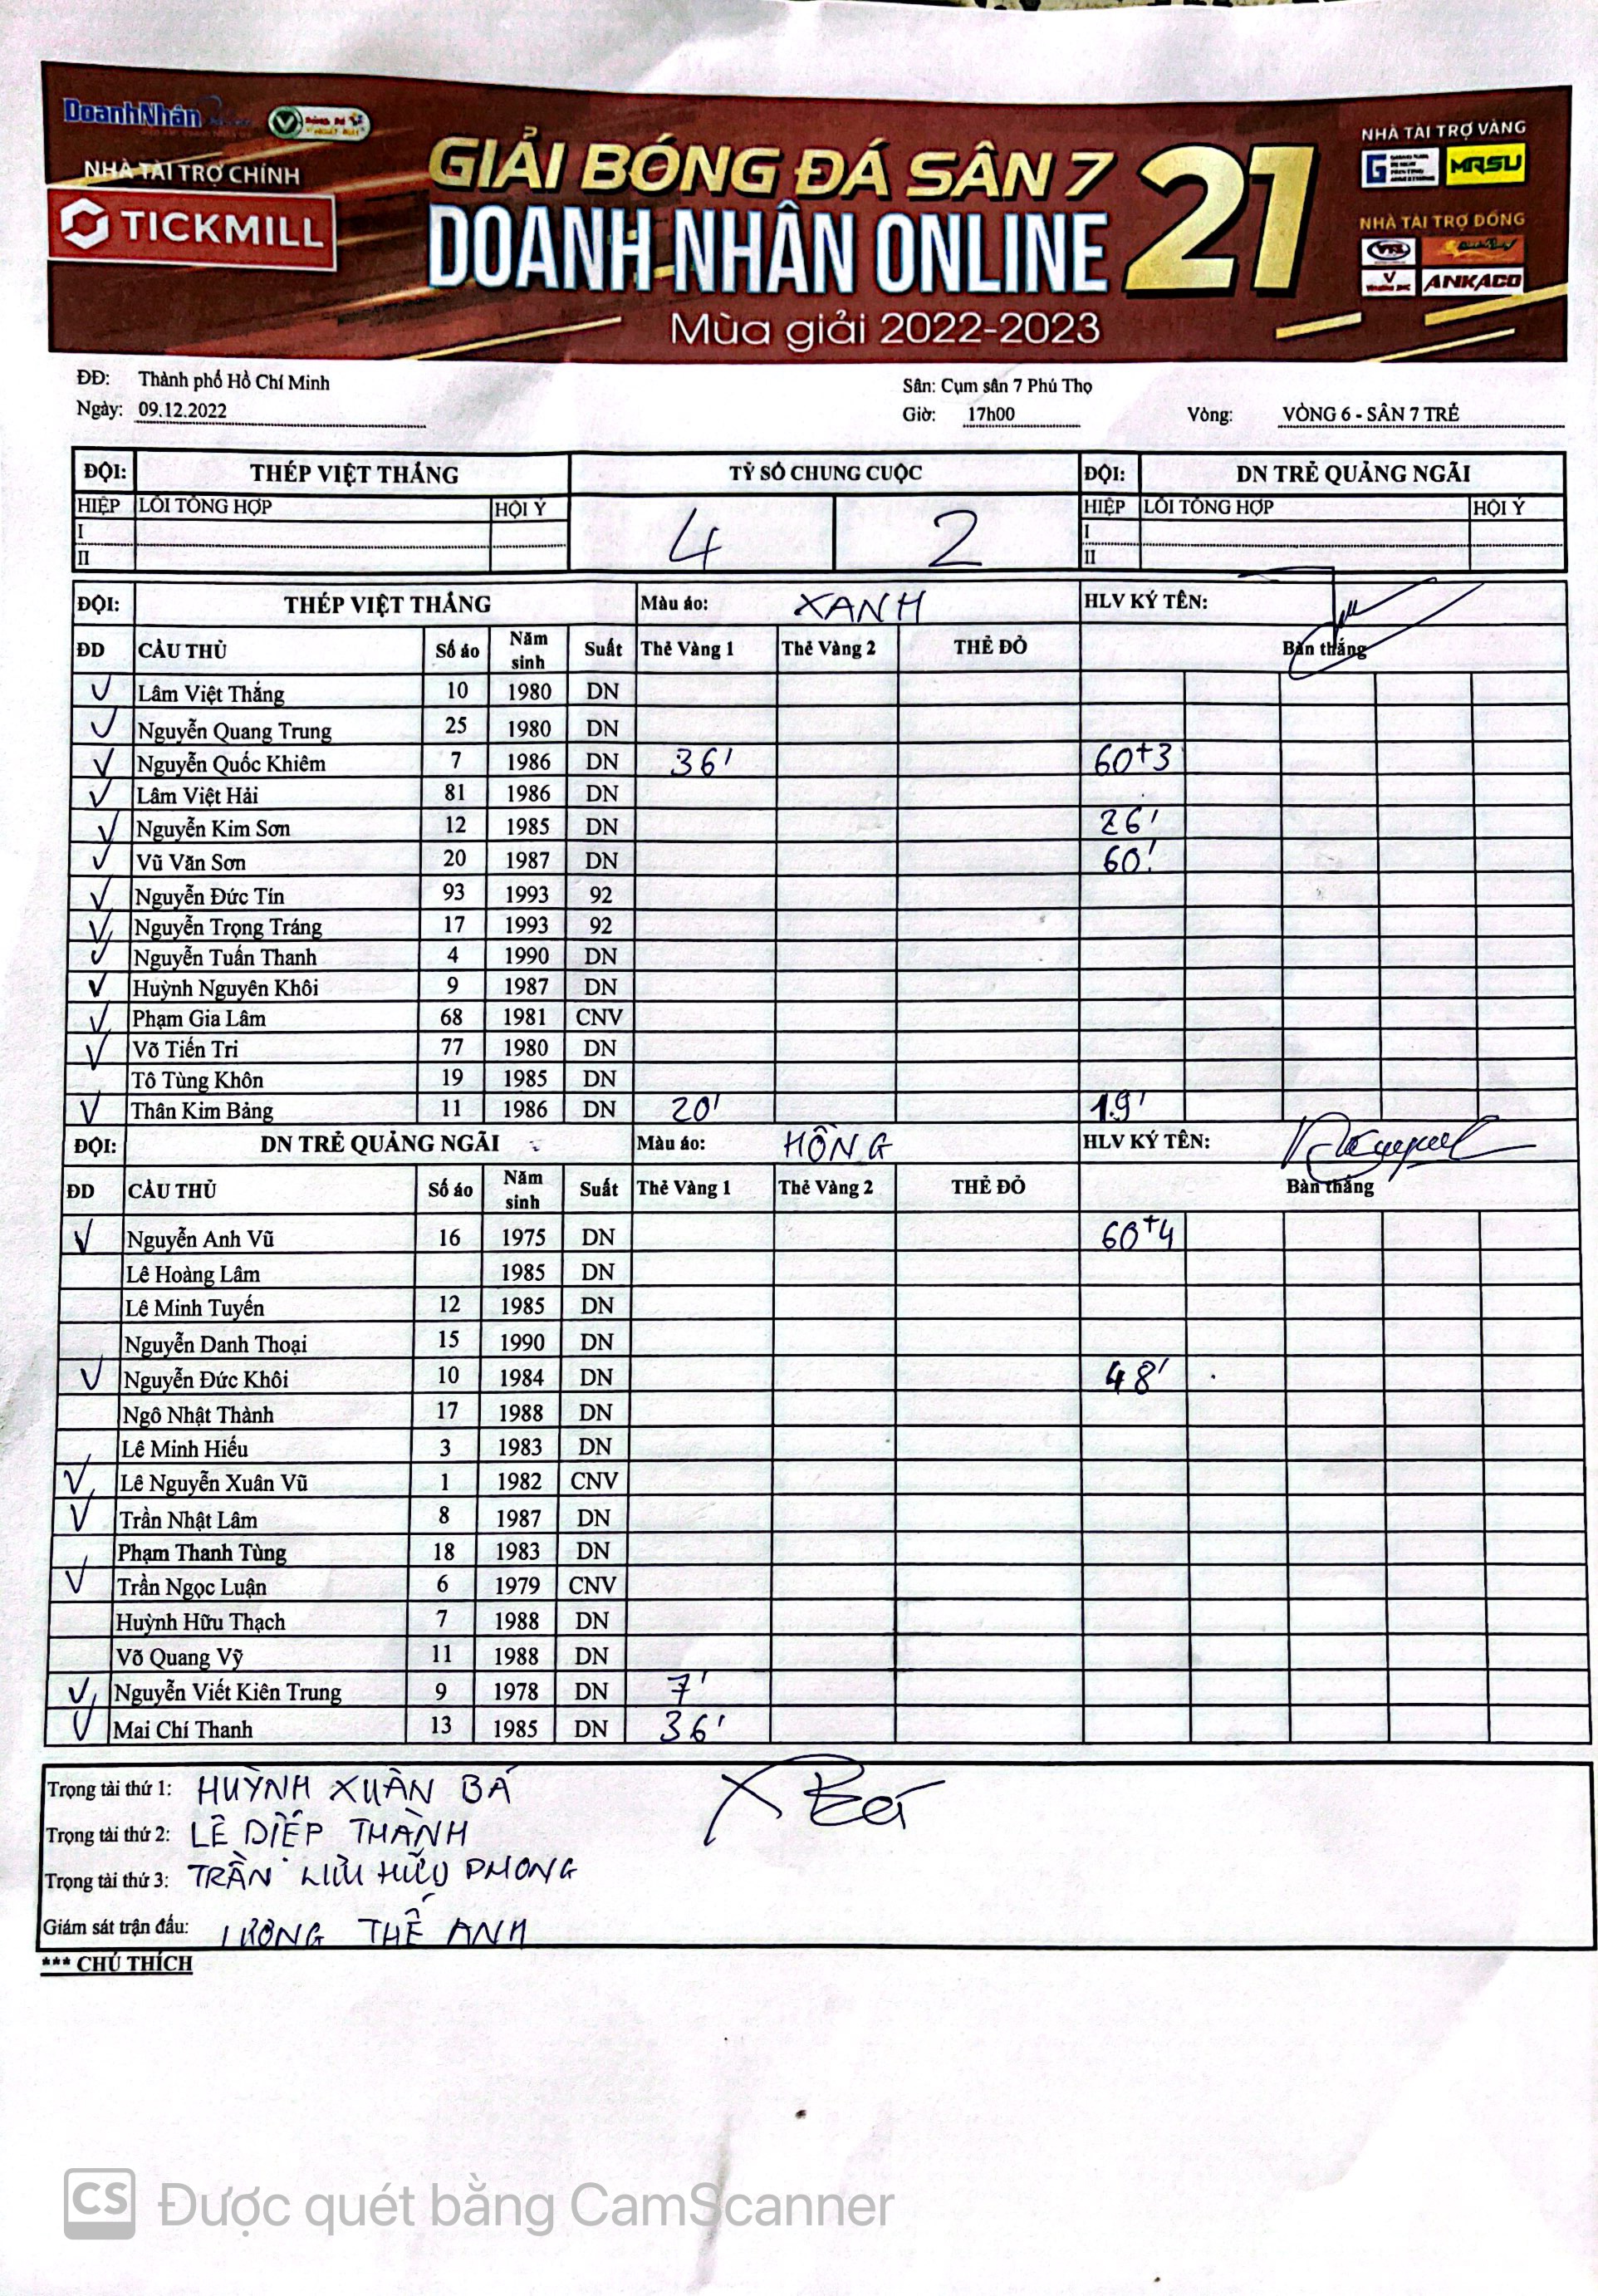 DoanhNhân
NHÀ TÀI TRỢ CHÍNH
TICKMILL
GIẢI BÓNG ĐÁ SÂN 7
DOANH NHÂN ONLINE 21
Mùa giải 2022-2023
NHÀ TÀI TRỢ VÀNG
G MRSU
NHÀ TÀI TRỢ ĐỒNG
ANKACO
ĐĐ: Thành phố Hồ Chí Minh Sân: Cụm sân 7 Phú Thọ
Ngày: 09.12.2022 Giờ: 17h00 Vòng: VÒNG 6 - SÂN 7 TRẺ
ĐỘI: THÉP VIỆT THẮNG TỶ SỐ CHUNG CUỘC ĐỘI: DN TRẺ QUẢNG NGÃI
HIỆP LỖI TỔNG HỢP HỘI Ý 4 2 HIỆP LỖI TỔNG HỢP HỘI Ý
I I
II II
ĐỘI: THÉP VIỆT THẮNG Màu áo: XANH HLV KÝ TÊN:
ĐD CẦU THỦ Số áo Năm sinh Suất Thẻ Vàng 1 Thẻ Vàng 2 THẺ ĐỎ Bàn thắng
V Lâm Việt Thắng 10 1980 DN
V Nguyễn Quang Trung 25 1980 DN
V Nguyễn Quốc Khiêm 7 1986 DN 36' 60+3
V Lâm Việt Hải 81 1986 DN
V Nguyễn Kim Sơn 12 1985 DN 26'
V Vũ Văn Sơn 20 1987 DN 60'
V Nguyễn Đức Tín 93 1993 92
V Nguyễn Trọng Tráng 17 1993 92
V Nguyễn Tuấn Thanh 4 1990 DN
V Huỳnh Nguyên Khôi 9 1987 DN
V Phạm Gia Lâm 68 1981 CNV
V Võ Tiến Tri 77 1980 DN
Tô Tùng Khôn 19 1985 DN
V Thân Kim Bảng 11 1986 DN 20' 19'
ĐỘI: DN TRẺ QUẢNG NGÃI Màu áo: HỒNG HLV KÝ TÊN:
ĐD CẦU THỦ Số áo Năm sinh Suất Thẻ Vàng 1 Thẻ Vàng 2 THẺ ĐỎ Bàn thắng
V Nguyễn Anh Vũ 16 1975 DN 60+4
Lê Hoàng Lâm 1985 DN
Lê Minh Tuyến 12 1985 DN
Nguyễn Danh Thoại 15 1990 DN
V Nguyễn Đức Khôi 10 1984 DN 48'
Ngô Nhật Thành 17 1988 DN
Lê Minh Hiếu 3 1983 DN
V Lê Nguyễn Xuân Vũ 1 1982 CNV
V Trần Nhật Lâm 8 1987 DN
Phạm Thanh Tùng 18 1983 DN
V Trần Ngọc Luận 6 1979 CNV
Huỳnh Hữu Thạch 7 1988 DN
Võ Quang Vỹ 11 1988 DN
V Nguyễn Viết Kiên Trung 9 1978 DN 7'
V Mai Chí Thanh 13 1985 DN 36'
Trọng tài thứ 1: HUỲNH XUÂN BÁ
Trọng tài thứ 2: LÊ DIỆP THÀNH
Trọng tài thứ 3: TRẦN LƯU HỮU PHONG
Giám sát trận đấu: LƯƠNG THẾ ANH
*** CHÚ THÍCH
CS Được quét bằng CamScanner